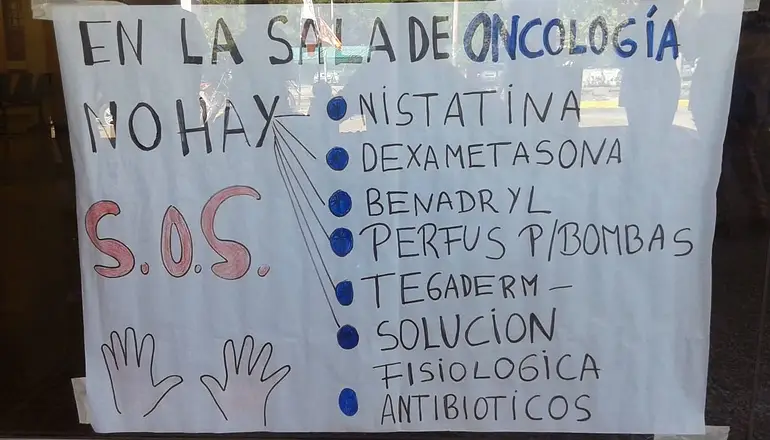 EN LA SALA DE ONCOLOGÍA
NO HAY
NISTATINA
DEXAMETASONA
BENADRYL
PERFUS P/BOMBAS
TEGADERM-
SOLUCION
FISIOLOGICA
ANTIBIOTICOS
S.O.S.